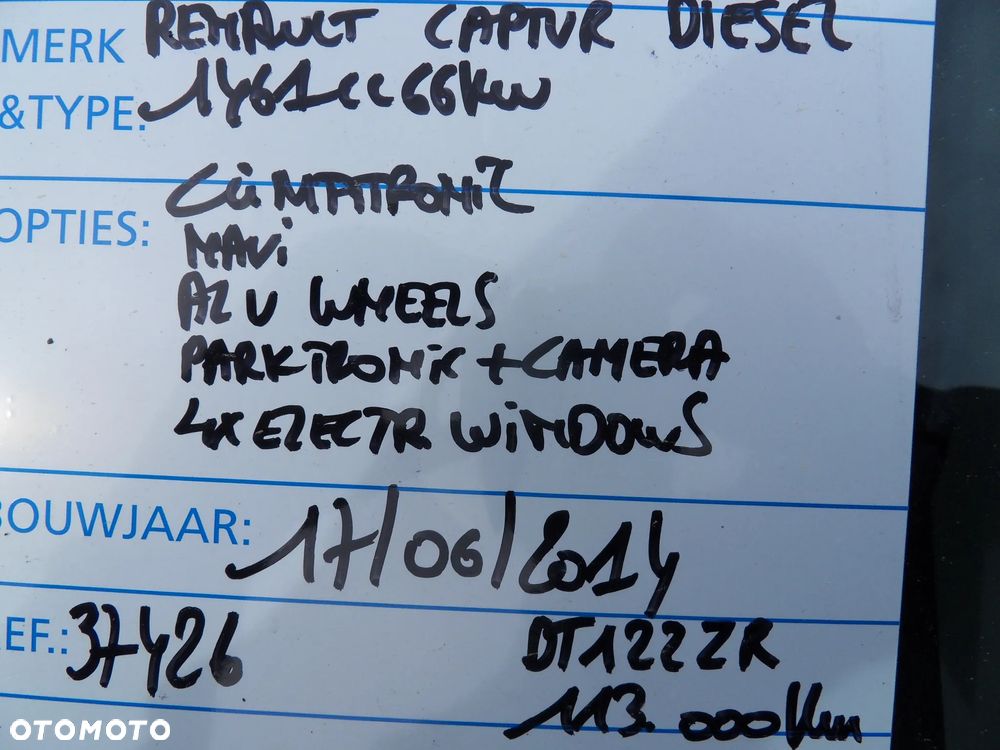 MERK RENAULT CAPTUR DIESEL
&TYPE: 1461cc 66kw
CLIMATRONIC
OPTIES: NAVI
ALU WHEELS
PARKTRONIC + CAMERA
4x ELECTR. WINDOWS
BOUWJAAR: 17/06/2014
REF.: 37426 DT122ZR
113.000km
OTOMOTO